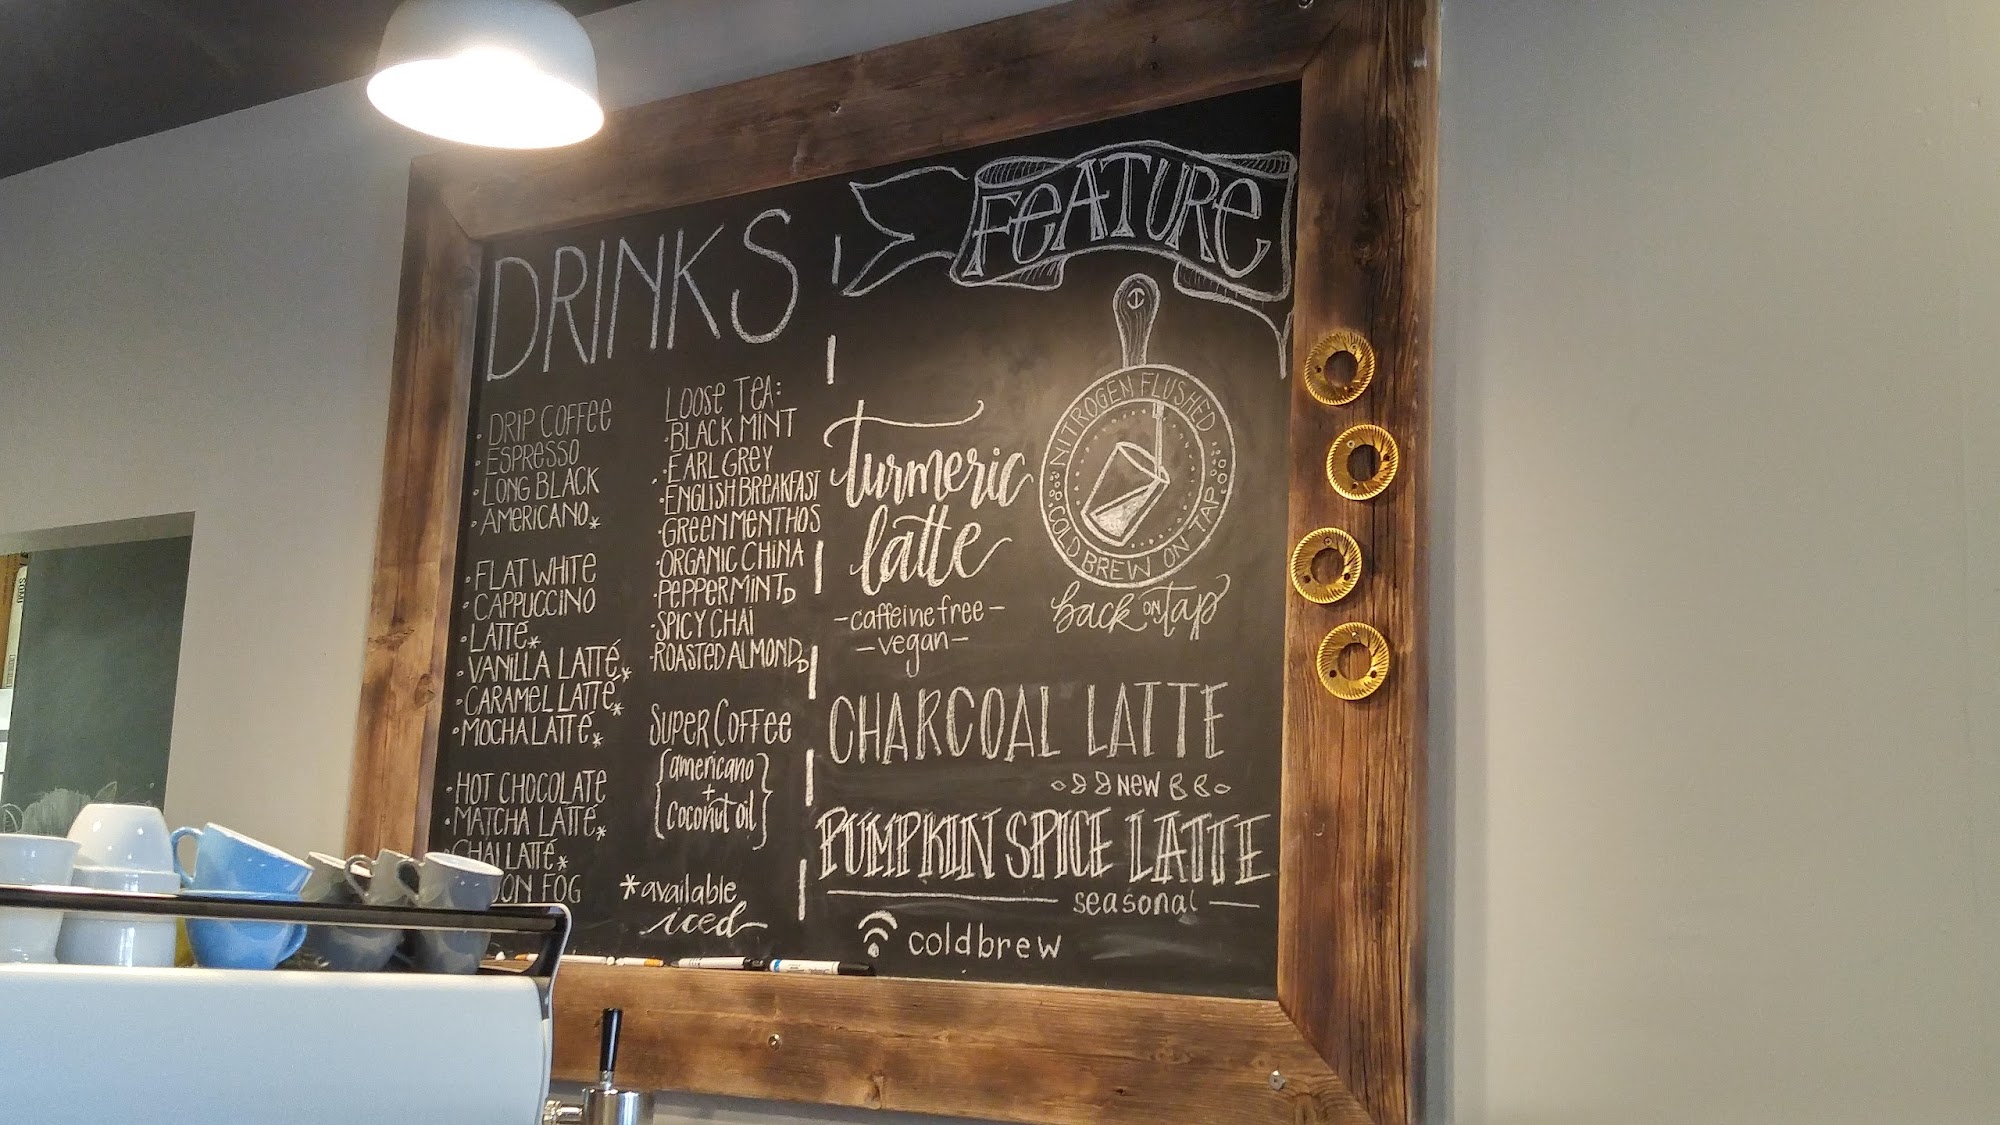 DRINKS
DRIP COFFEE
ESPRESSO
LONG BLACK
AMERICANO*
FLAT WHITE
CAPPUCCINO
LATTÉ*
VANILLA LATTÉ*
CARAMEL LATTÉ*
MOCHA LATTÉ*
HOT CHOCOLATE
MATCHA LATTÉ*
CHAI LATTÉ*
FOG
LOOSE TEA:
BLACK MINT
EARL GREY
ENGLISH BREAKFAST
GREEN MENTHOS
ORGANIC CHINA
PEPPERMINT D
SPICY CHAI
ROASTED ALMOND D
SUPER COFFEE
{americano
+
coconut oil}
*available
iced
FEATURE
turmeric
latte
-caffeine free-
-vegan-
NITROGEN FLUSHED
COLD BREW ON TAP
back on tap
CHARCOAL LATTE
NEW
PUMPKIN SPICE LATTE
seasonal
coldbrew